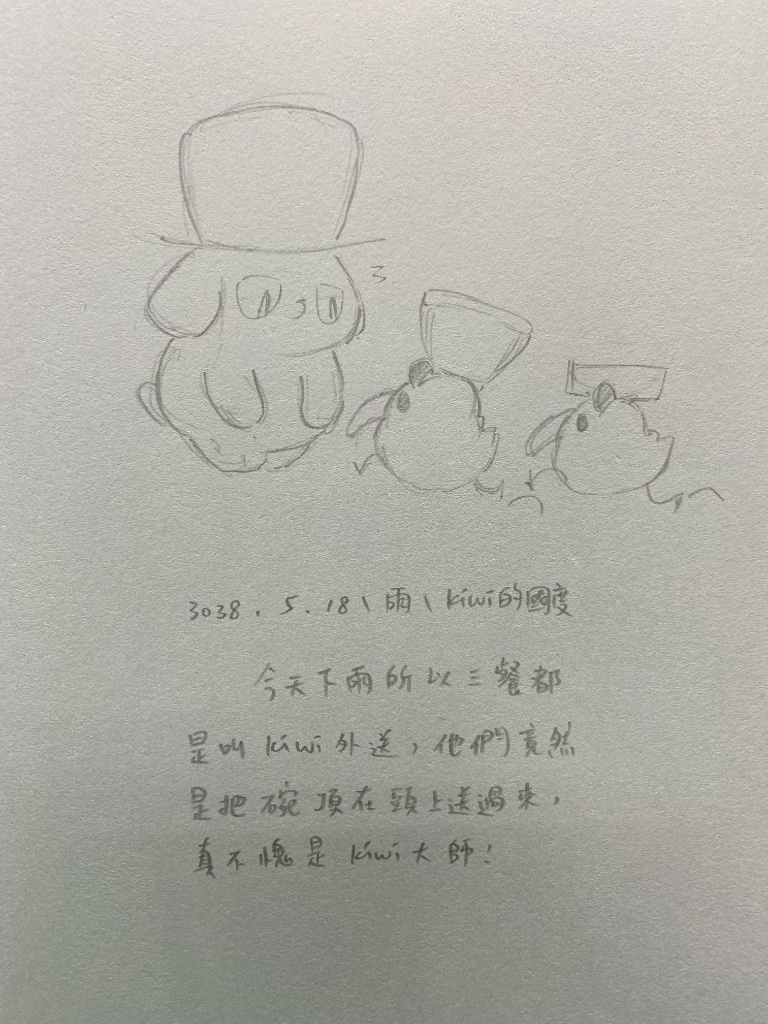 3038.5.18\雨\kiwi的國度
今天下雨所以三餐都
是叫kiwi外送,他們竟然
是把碗頂在頭上送過來,
真不愧是kiwi大師!